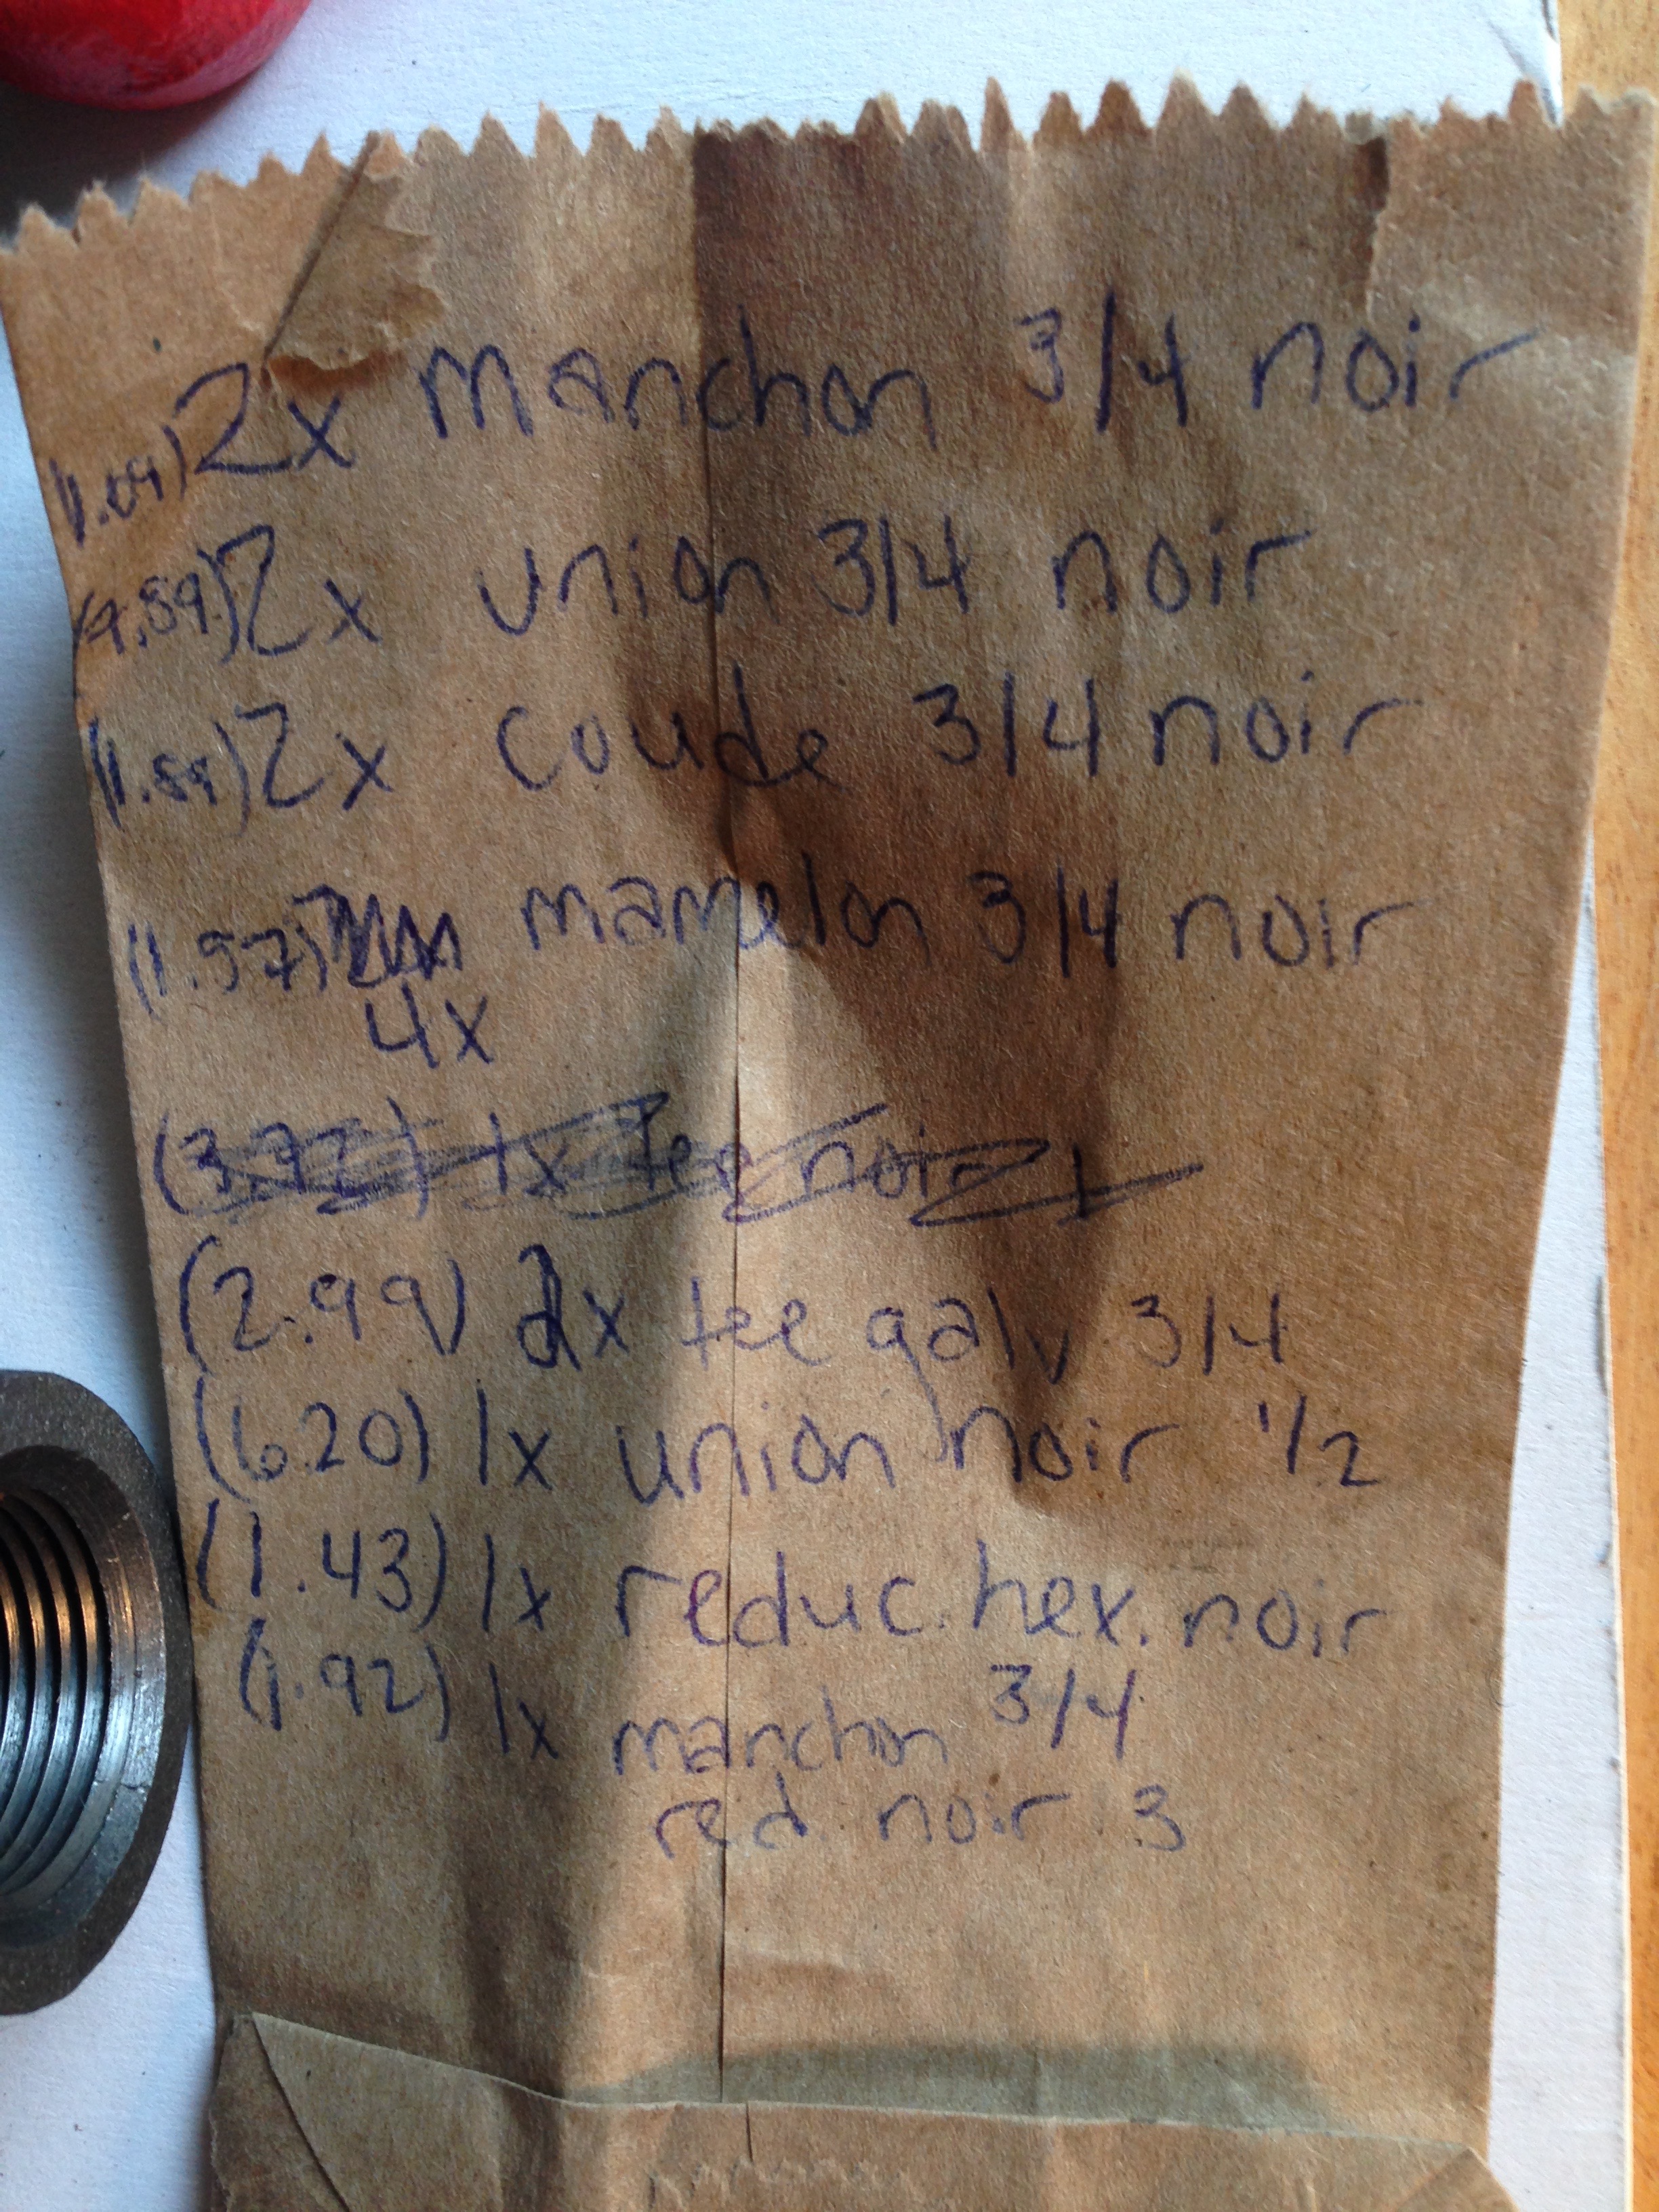 (1.09) 2x manchon 3/4 noir
(4.89) 2x union 3/4 noir
(1.89) 2x coude 3/4 noir
(1.57) mamelon 3/4 noir
4x
1x tee noir
(2.99) 2x tee galv 3/4
(6.20) 1x union noir 1/2
(1.43) 1x reduc. hex. noir
(1.92) 1x manchon 3/4
red noir 3